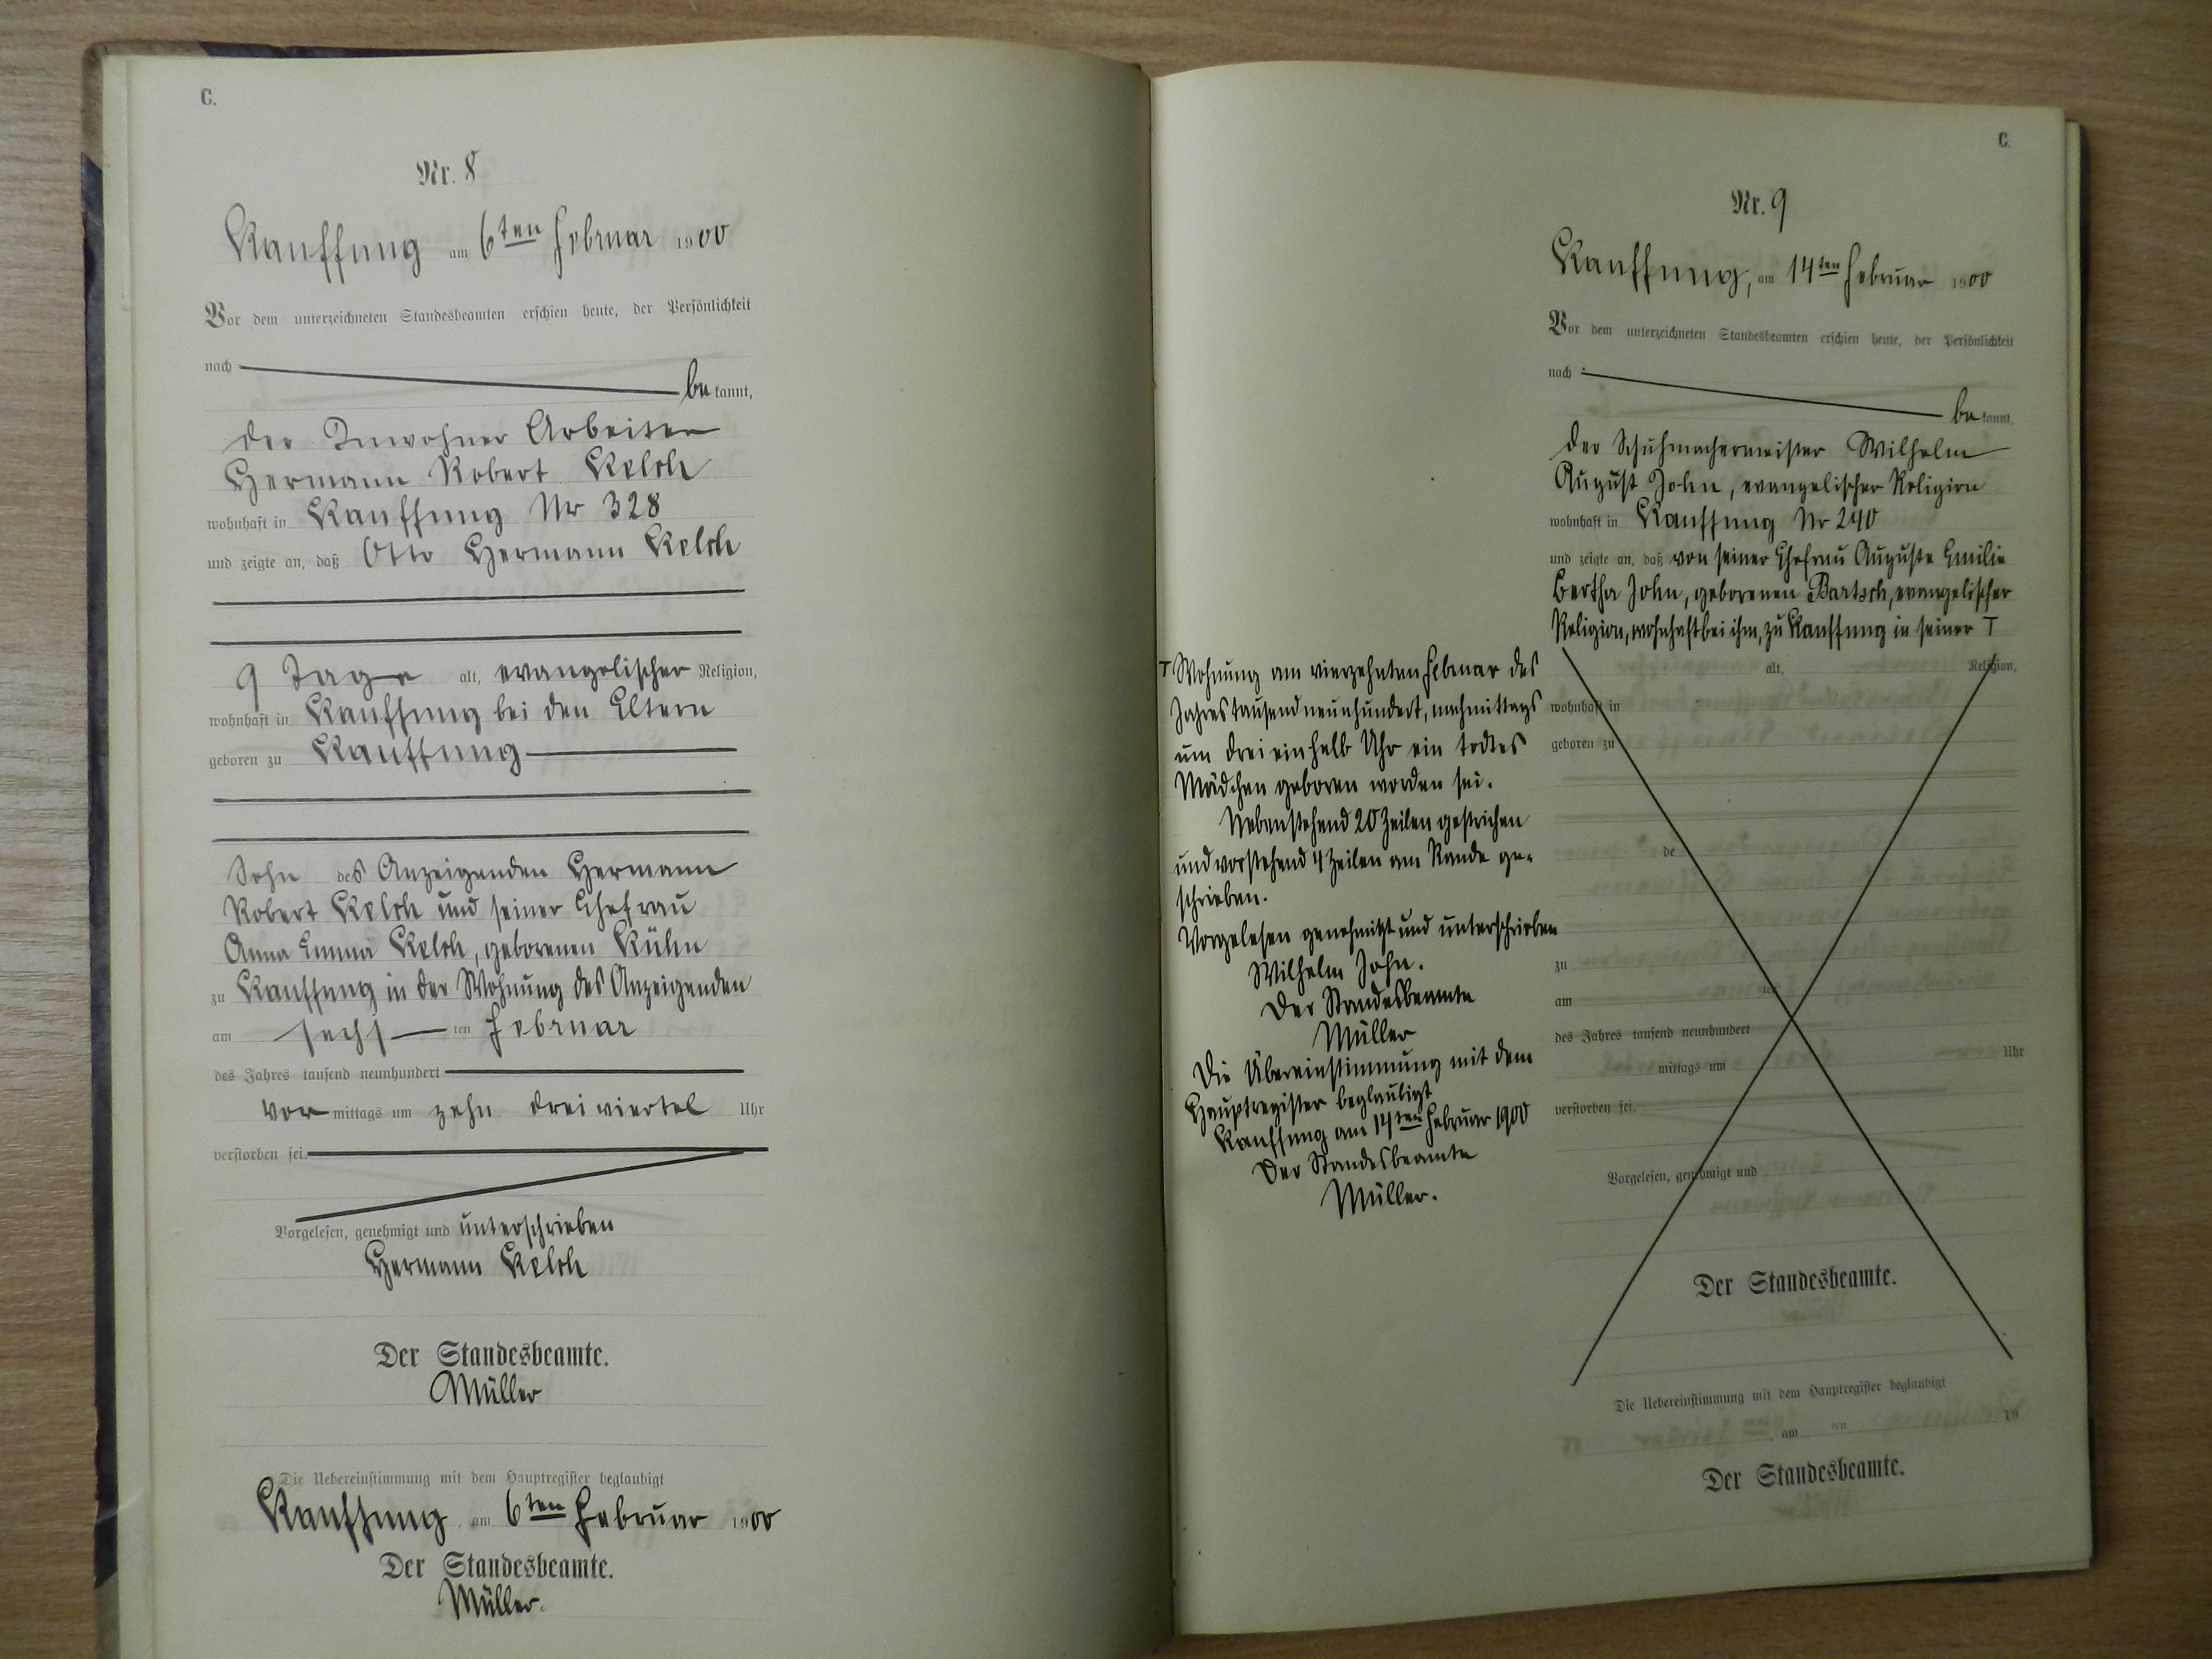 C.
Nr. 8
Kauffung am 6ten Februar 1900
Vor dem unterzeichneten Standesbeamten erschien heute, der Persönlichkeit
nach
be kannt,
der Inwohner Arbeiter
Hermann Robert Kelch
wohnhaft in Kauffung Nr 328
und zeigte an, daß Otto Hermann Kelch
9 Tage alt, evangelischer Religion,
wohnhaft in Kauffung bei den Eltern
geboren zu Kauffung
Sohn des Anzeigenden Hermann
Robert Kelch und seiner Ehefrau
Anna Emma Kelch, geborenen Kühn
zu Kauffung in der Wohnung des Anzeigenden
am sechs ten Februar
des Jahres tausend neunhundert
vor mittags um zehn dreiviertel Uhr
verstorben sei.
Vorgelesen, genehmigt und unterschrieben
Hermann Kelch
Der Standesbeamte.
Müller
Die Uebereinstimmung mit dem Hauptregister beglaubigt
Kauffung, am 6ten Februar 1900
Der Standesbeamte.
Müller.
C.
Nr. 9
Kauffung, am 14ten Februar 1900
Vor dem unterzeichneten Standesbeamten erschien heute, der Persönlichkeit
nach
be kannt,
der Schuhmachermeister Wilhelm
August John, evangelischer Religion
wohnhaft in Kauffung Nr 240
und zeigte an, daß von seiner Ehefrau Auguste Emilie
Bertha John, geborenen Bartsch, evangelischer
Religion, wohnhaft bei ihm, zu Kauffung in seiner T
T Wohnung am vierzehnten Februar des
Jahres tausend neunhundert, nachmittags
um drei einhalb Uhr ein todtes
Mädchen geboren worden sei.
Nebenstehend 20 Zeilen gestrichen
und vorstehend 4 Zeilen am Rande ge-
schrieben.
Vorgelesen genehmigt und unterschrieben
Wilhelm John.
Der Standesbeamte
Müller
Die Übereinstimmung mit dem
Hauptregister beglaubigt
Kauffung am 14ten Februar 1900
Der Standesbeamte
Müller.
alt, Religion,
wohnhaft in
geboren zu
de
zu
am ten
des Jahres tausend neunhundert
mittags um Uhr
verstorben sei.
Vorgelesen, genehmigt und
Der Standesbeamte.
Die Uebereinstimmung mit dem Hauptregister beglaubigt
, am ten 19
Der Standesbeamte.